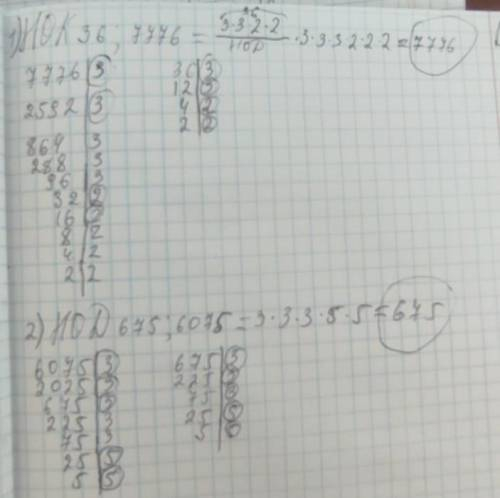 1) НОК 36; 7776 = 3·3·2·2 · 3·3·3·2·2·2 = 7776
36
НОД
7776 | 3
2592 | 3
864 | 3
288 | 3
96 | 3
32 | 2
16 | 2
8 | 2
4 | 2
2 | 2
36 | 3
12 | 3
4 | 2
2 | 2
2) НОД 675; 6075 = 3·3·3·5·5 = 675
6075 | 3
2025 | 3
675 | 3
225 | 3
75 | 3
25 | 5
5 | 5
675 | 3
225 | 3
75 | 3
25 | 5
5 | 5